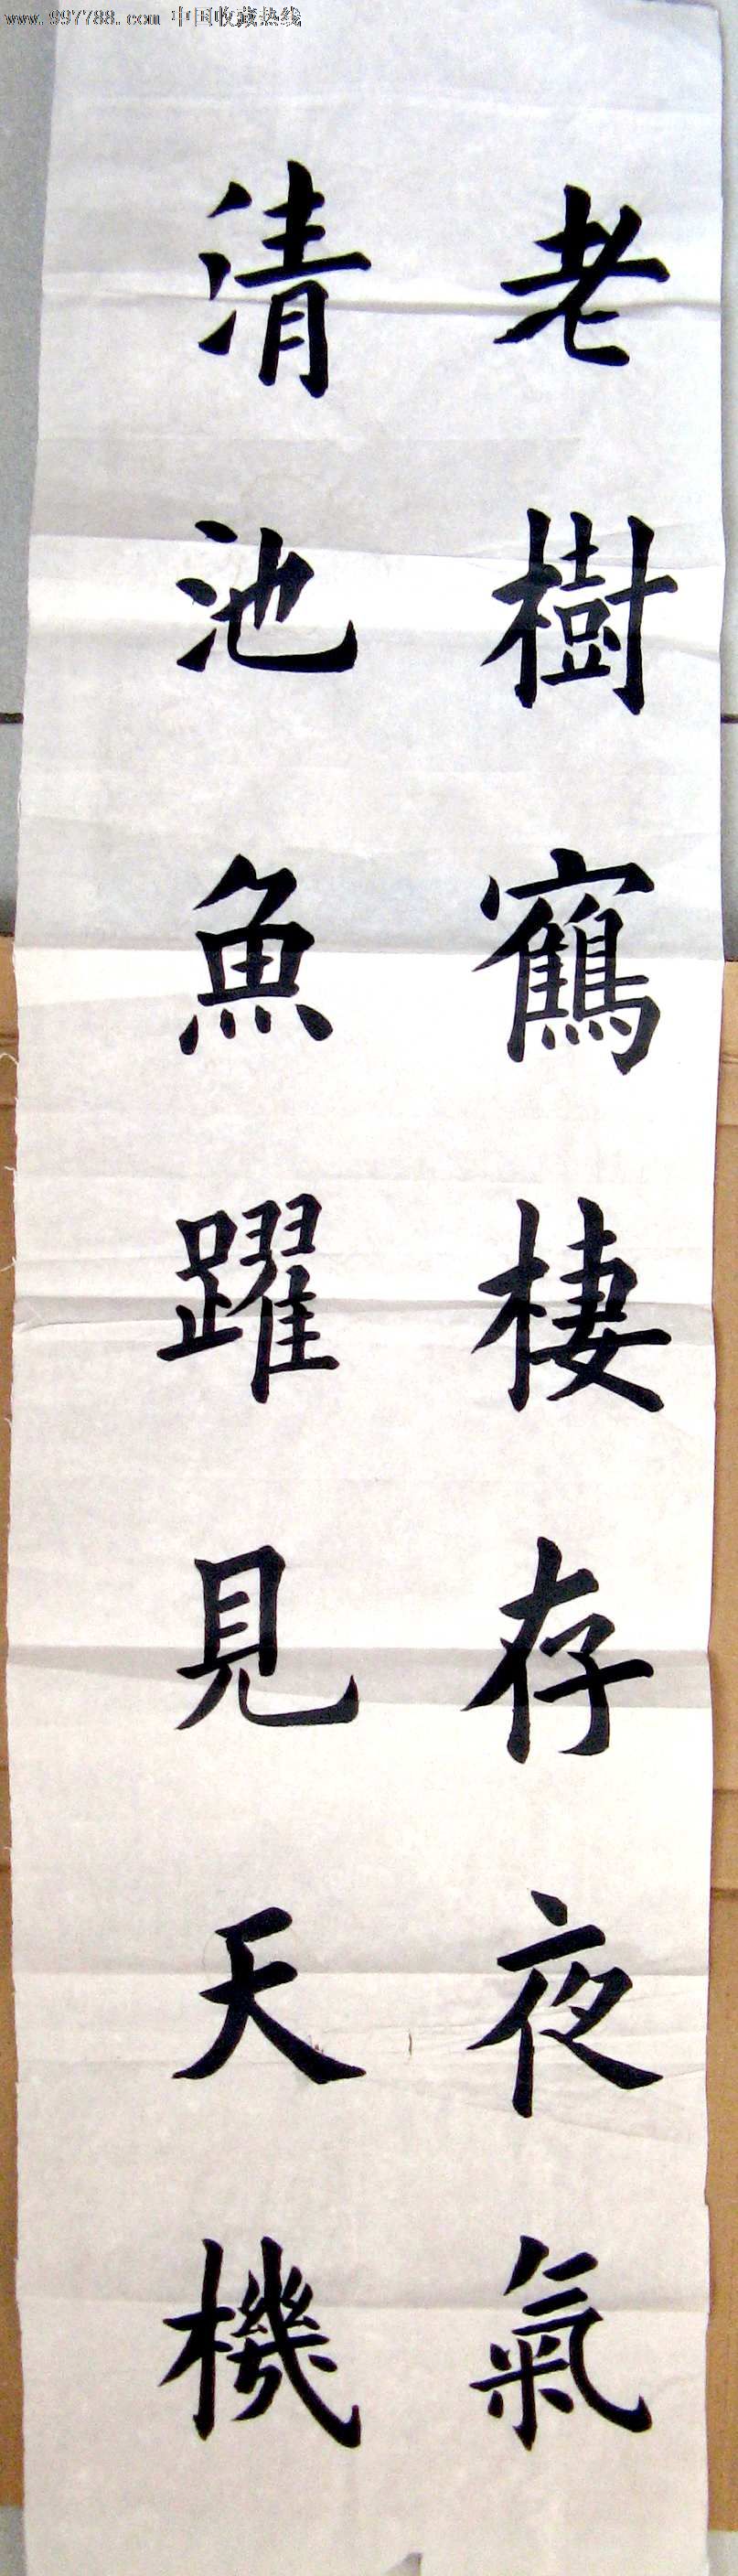 www.997788.com 中国收藏热线
老樹鶴棲存夜氣
清池魚躍見天機